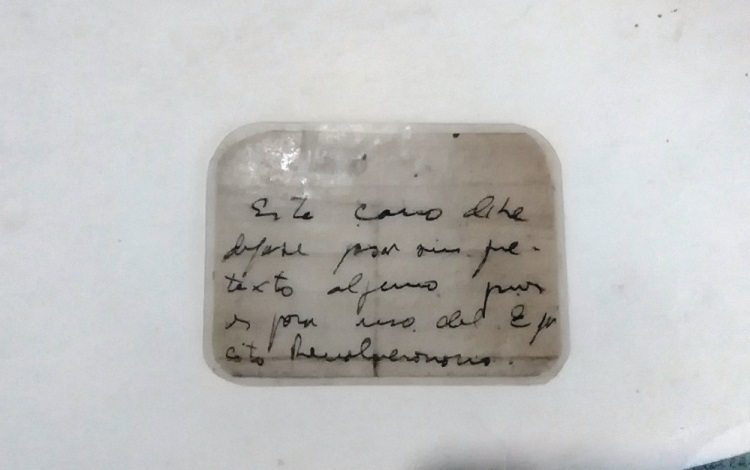 Este carro debe
dejarse pasar sin pre-
texto alguno pues
es para uso del Ejér
cito Revolucionario.